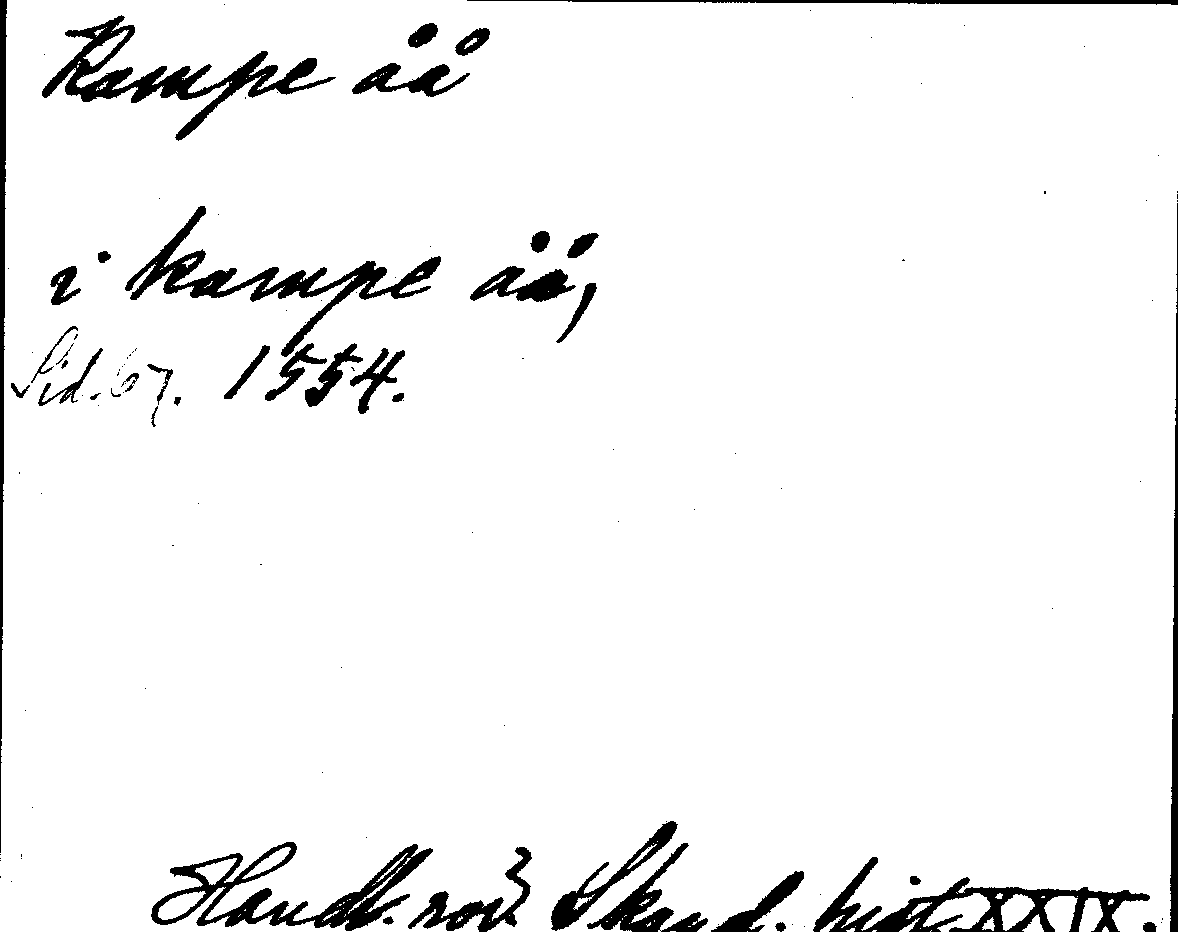 Kampe åå
i kampe åå,
Sid. 67. 1554.
Handl. rör. Skand. hist. XXIX.